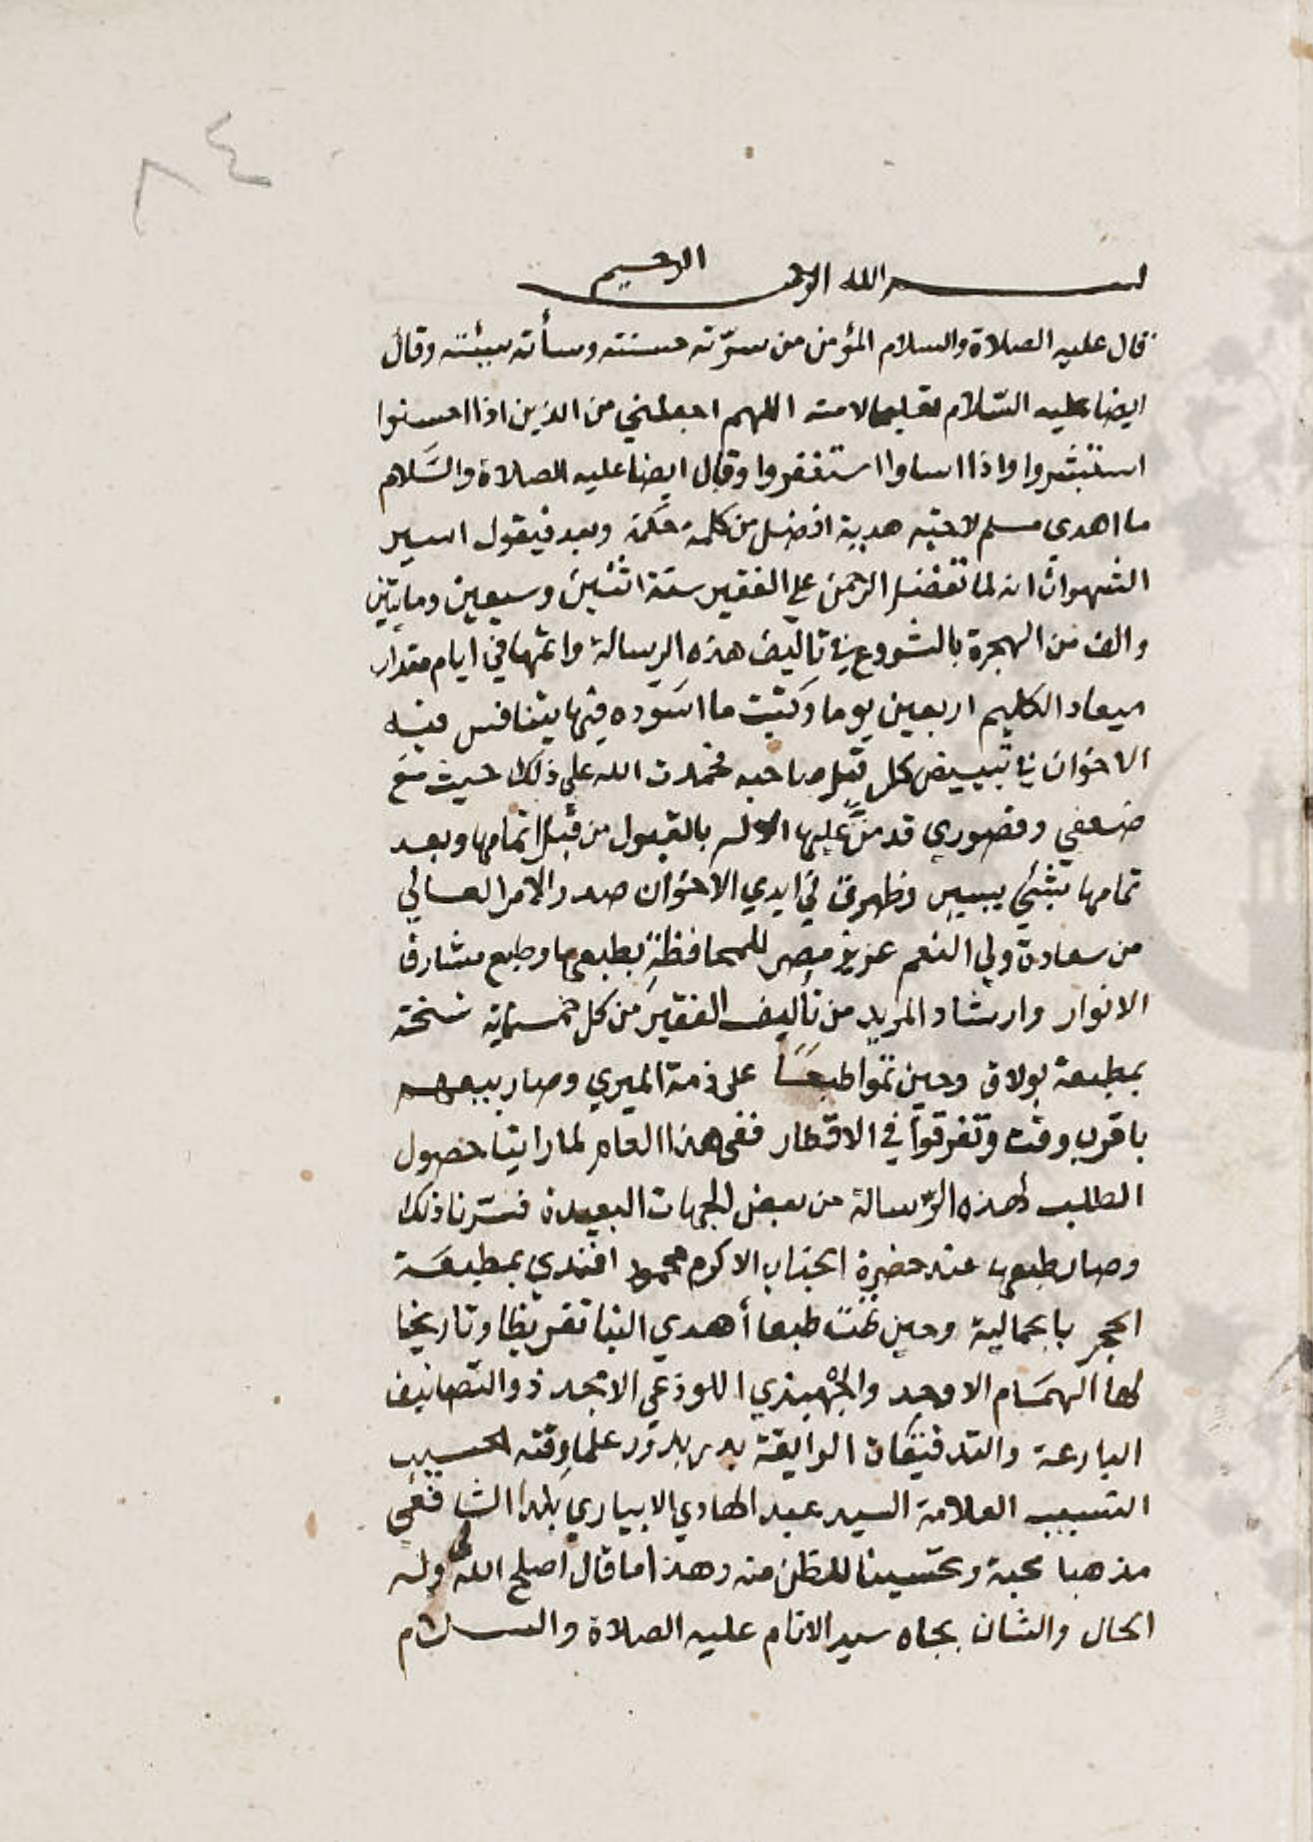 ٨٤
بسم الله الرحمن الرحيم
قال عليه الصلاة والسلام المؤمن من سرّته حسنته وسأته سيئته وقال
ايضا عليه السّلام تعليما لامته اللهم اجعلني من الذين اذا احسنوا
استبشروا واذا اساوا استغفروا وقال ايضا عليه الصلاة والسَّلام
ما اهدي مسلم لاخيه هدية افضل من كلمة حكمة وبعد فيقول اسير
الشهوات انه لما تفضل الرحمن علي الفقير سنة اثنين وسبعين ومايتين
والف من الهجرة بالشروع في تاليف هذه الرسالة واتمها في ايام مقدار
ميعاد الكليم اربعين يوما وكنت ما اسَوده فيها يتنافس فيه
الاخوان في تبييض كل قبل صاحبه فحمدت الله علي ذلك حيث مع
ضعفي وقصوري قد منَّ عليها الاله بالقبول من قبل اتمامها وبعد
تمامها بشئ يسير وظهرت في ايدي الاخوان صدر الامر العالي
من سعادة ولي النعم عزيز مصر للمحافظة بطبعها وطبع مشارق
الانوار وارشاد المريد من تأليف الفقير من كل خمسماية نسخة
بمطبعة بولاق وحين تموا طبعًا على ذمة الميري وصار بيعهم
باقرب وقت وتفرقوا في الاقطار ففي هذا العام لما راينا حصول
الطلب لهذه الرّسالة من بعض الجهات البعيدة فسّرنا ذلك
وصار طبعها عند حضرة الجناب الاكرم محمود افندي بمطبعة
الحجر بالجمالية وحين تمت طبعا أهدي الينا تقريظا وتاريخا
لها الهمَام الاوحد والجهبذي اللوذعي الامجد ذو التصانيف
البارعة والتدقيقات الرايقة بدر بدور علما وقته الحسيب
النسيب العلامة السيد عبد الهادي الابياري بلدا الشافعي
مذهبا محبة وتحسينا للظن منه وهذا ما قال اصلح الله لي وله
الحال والشان بجاه سيد الانام عليه الصلاة والسلام